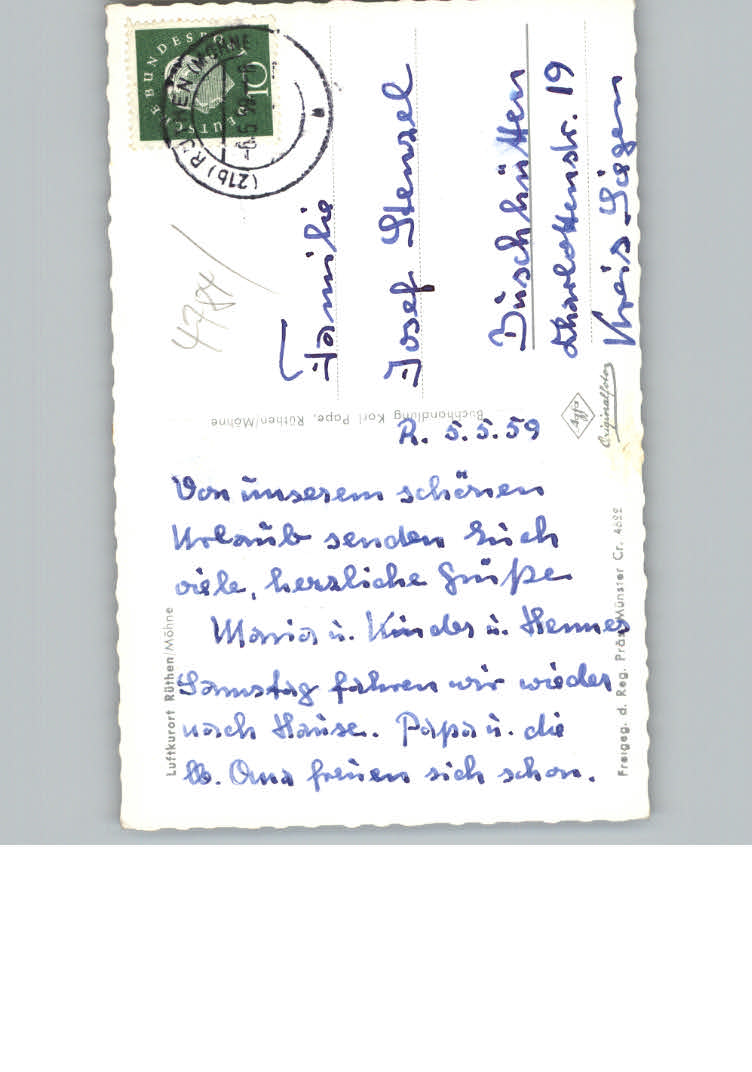 DEUTSCHE BUNDESPOST
10
(21b) RÜTHEN (MÖHNE)
-6.5.59
4784
Familie
Josef Stenzel
Buschhütten
Charlottenstr. 19
Kreis Siegen
Buchhandlung Karl Pape, Rüthen/Möhne
Agfa
Originalfoto
R. 5.5.59
Von unserem schönen
Urlaub senden Euch
viele, herzliche Grüße
Maria u. Kinder u. Hennes
Samstag fahren wir wieder
nach Hause. Papa u. die
lb. Oma freuen sich schon.
Luftkurort Rüthen/Möhne
Freigeg. d. Reg. Präs. Münster Cr. 4622